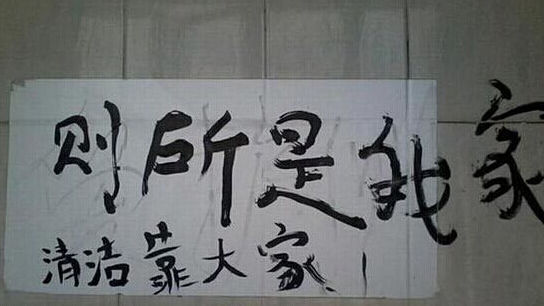 则所是我家
清洁靠大家!